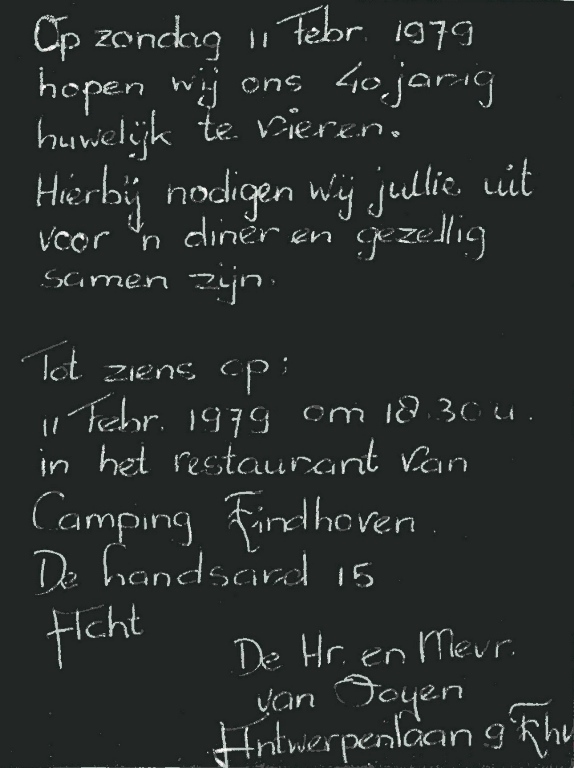 Op zondag 11 Febr. 1979
hopen wij ons 40 jarig
huwelijk te vieren.
Hierbij nodigen wij jullie uit
voor 'n diner en gezellig
samen zijn.
Tot ziens op:
11 Febr. 1979 om 18.30 u.
in het restaurant van
Camping Eindhoven.
De handsard 15
Acht
De Hr. en Mevr.
van Ooyen
Antwerpenlaan 9 Ehv